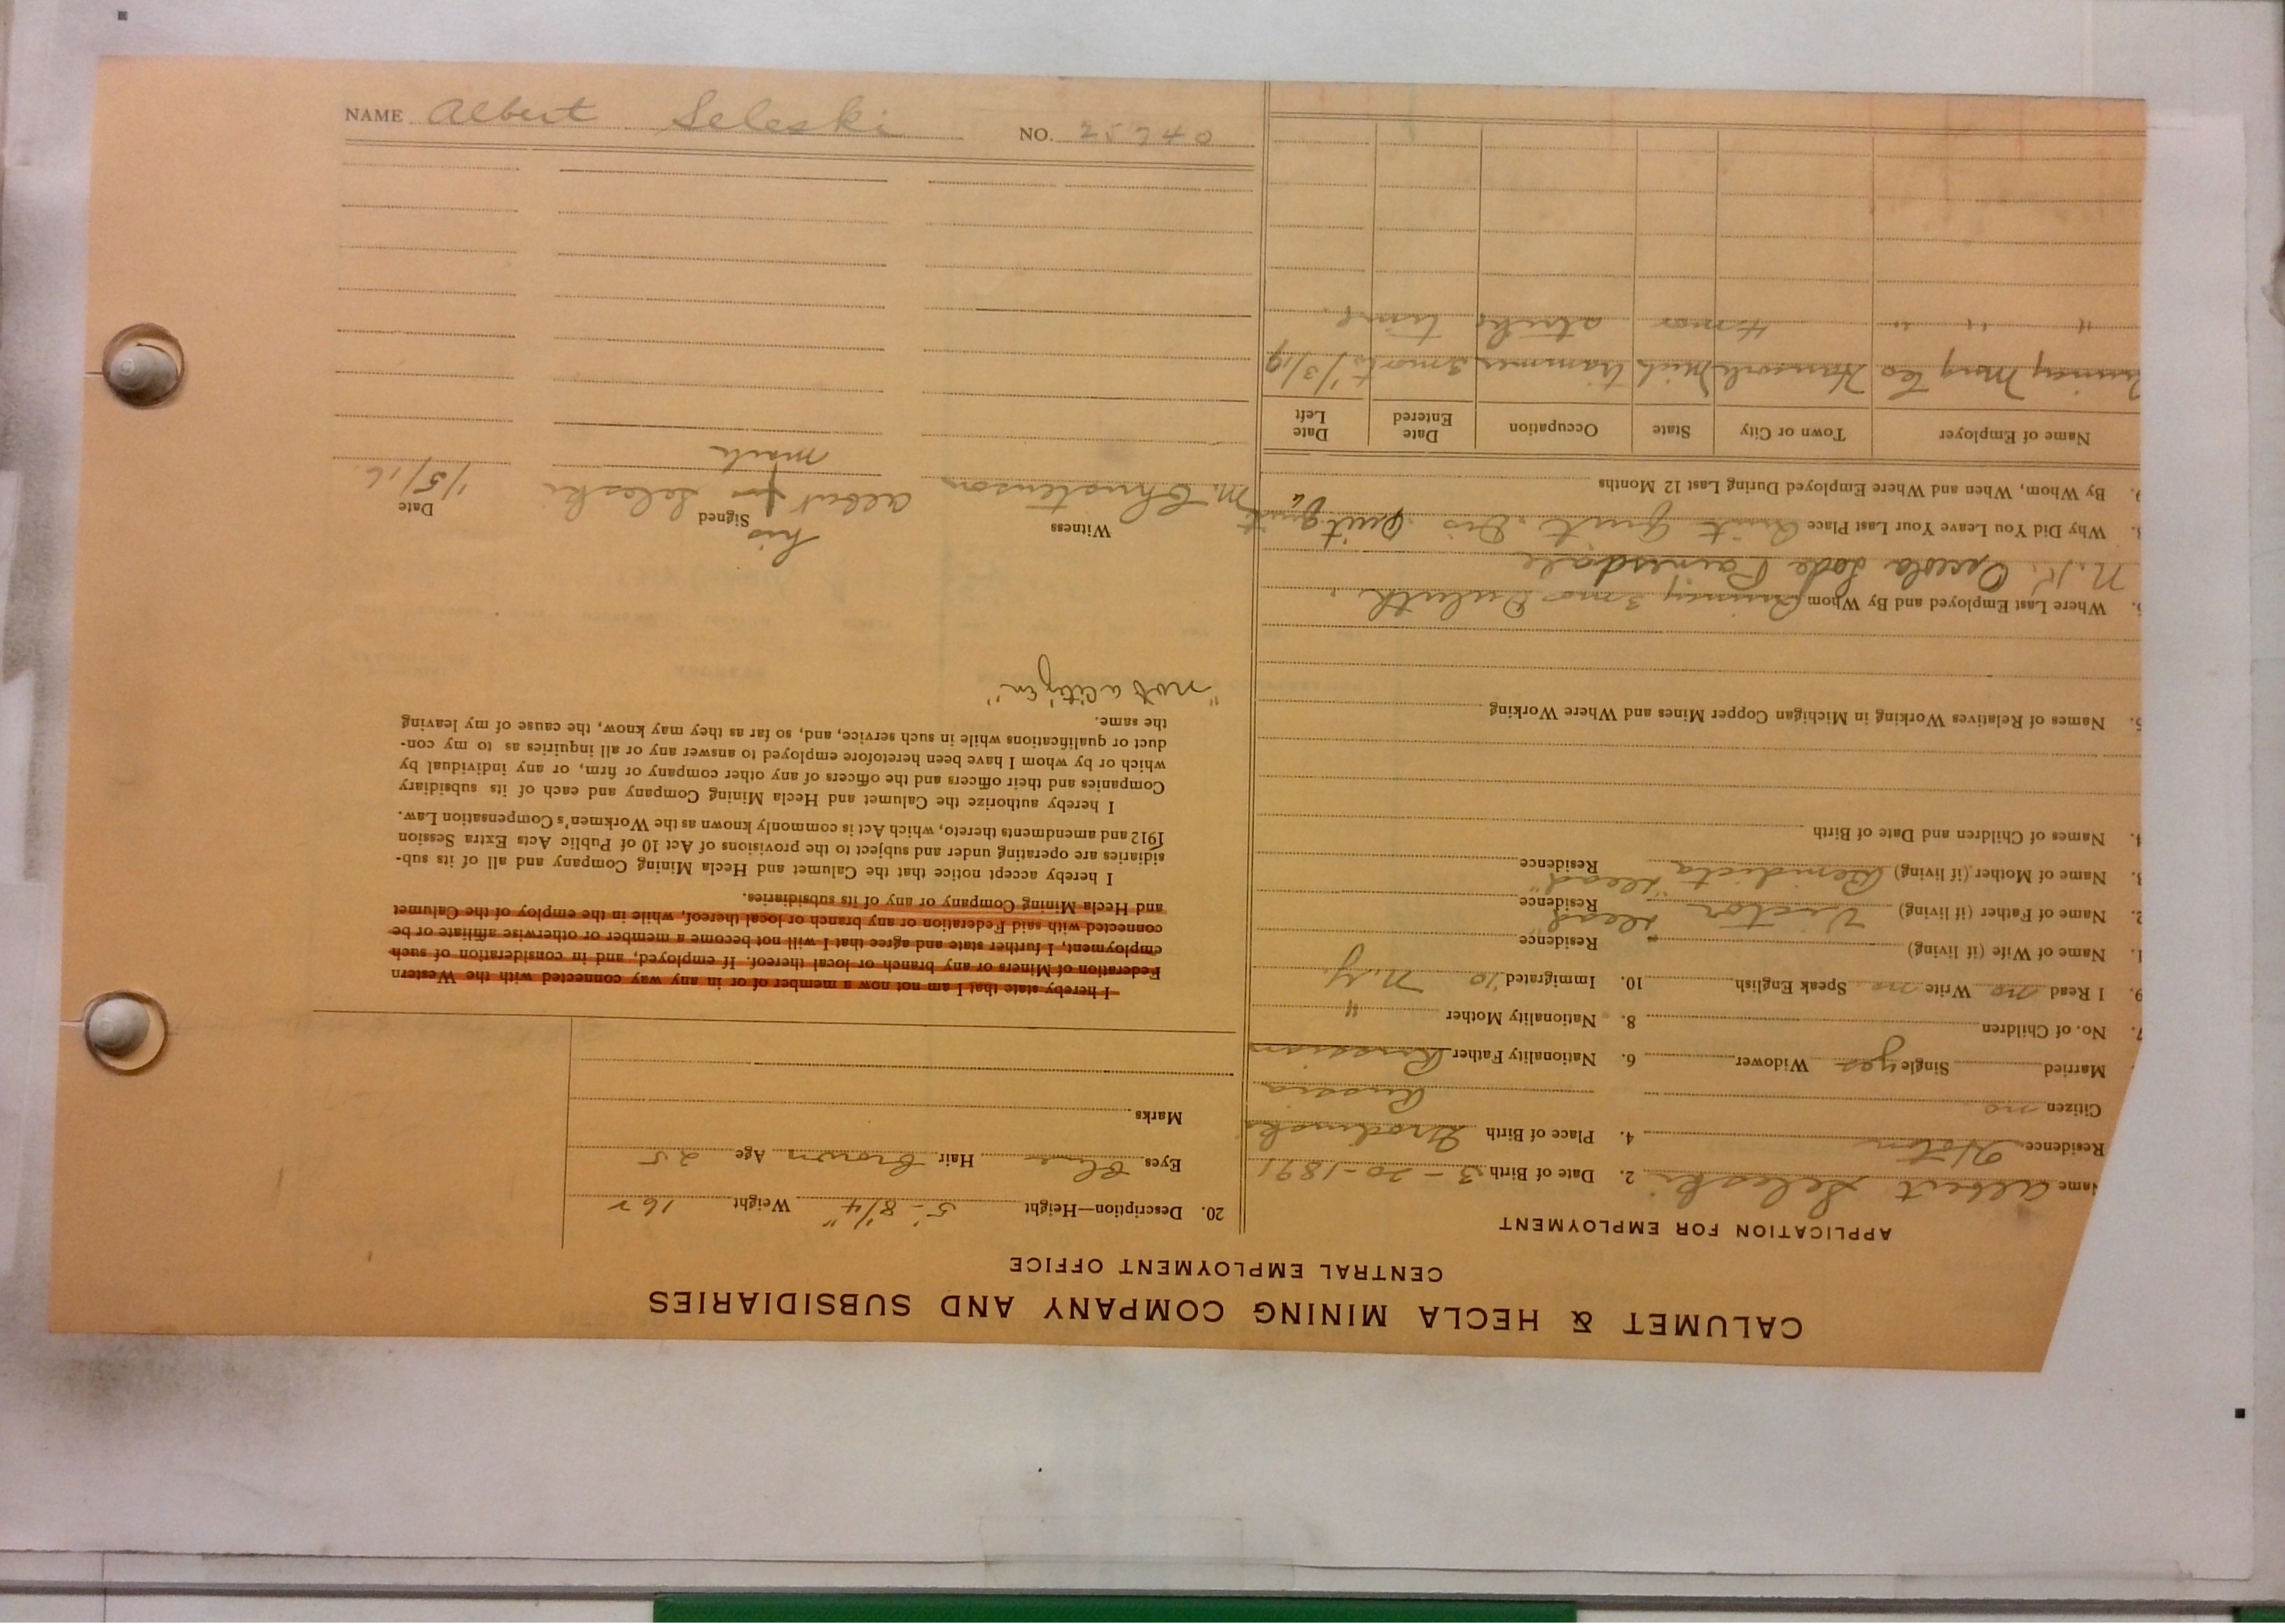 NAME Albert Seleski NO. 25740
CALUMET & HECLA MINING COMPANY AND SUBSIDIARIES
CENTRAL EMPLOYMENT OFFICE
APPLICATION FOR EMPLOYMENT
Name Albert Seleski 2. Date of Birth 3-20-1891
Residence 4. Place of Birth
Citizen no Russia
Married Single yes Widower 6. Nationality Father Russian
7. No. of Children 8. Nationality Mother "
9. I Read no Write no Speak English 10. Immigrated N.Y.
1. Name of Wife (if living) Residence
2. Name of Father (if living) Victor "dead" Residence
3. Name of Mother (if living) Benidicta "dead" Residence
4. Names of Children and Date of Birth
5. Names of Relatives Working in Michigan Copper Mines and Where Working
Where Last Employed and By Whom Quincy 3 mo Duluth
N.K. Osceola Lode Painesdale
Why Did You Leave Your Last Place Quit Quit Dis Quit
9. By Whom, When and Where Employed During Last 12 Months
Name of Employer Town or City State Occupation Date Entered Date Left
Quincy Mng Co Hancock Mich trammer 3 mo to 1/3/19
" " " 4 mos strike time
20. Description—Height 5'-8 1/4" Weight 162
Eyes Blue Hair brown Age 25
Marks
I hereby state that I am not now a member of or in any way connected with the Western
Federation of Miners or any branch or local thereof. If employed, and in consideration of such
employment, I further state and agree that I will not become a member or otherwise affiliate or be
connected with said Federation or any branch or local thereof, while in the employ of the Calumet
and Hecla Mining Company or any of its subsidiaries.
I hereby accept notice that the Calumet and Hecla Mining Company and all of its sub-
sidiaries are operating under and subject to the provisions of Act 10 of Public Acts Extra Session
1912 and amendments thereto, which Act is commonly known as the Workmen's Compensation Law.
I hereby authorize the Calumet and Hecla Mining Company and each of its subsidiary
Companies and their officers and the officers of any other company or firm, or any individual by
which or by whom I have been heretofore employed to answer any or all inquiries as to my con-
duct or qualifications while in such service, and, so far as they may know, the cause of my leaving
the same.
"not a citizen"
his
Witness Signed Date
M. Christenson Albert Seleski 1/5/16
mark